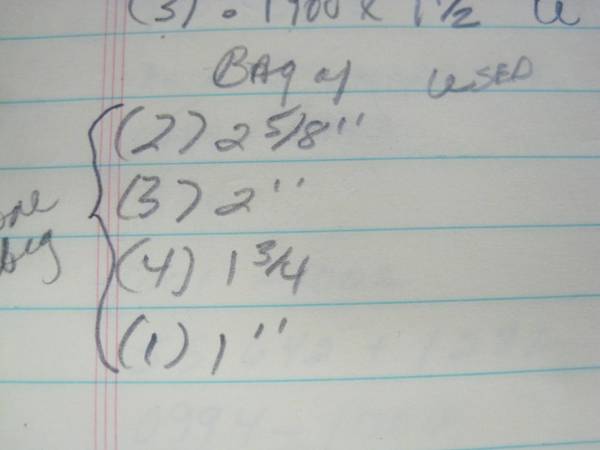 (3) . 1900 x 1 1/2 U
BAg of USED
(2) 2 5/8"
(3) 2"
one bag
(4) 1 3/4
(1) 1"